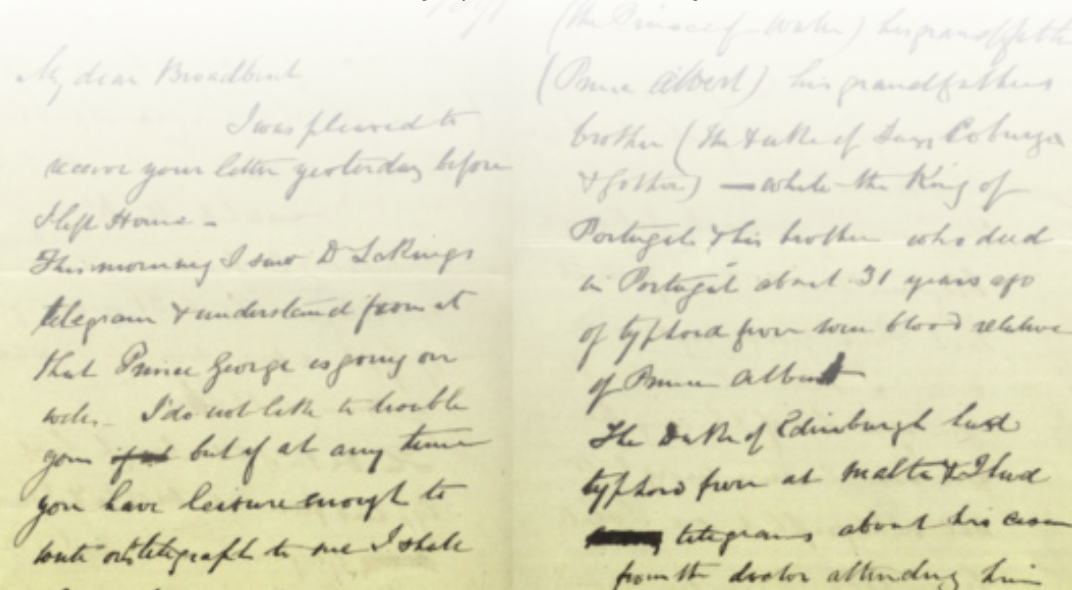 My dear Broadbent
I was pleased to
receive your letter yesterday before
I left Home -
This morning I saw Dr Lakings
telegram & understand from it
that Prince George is going on
well. I do not like to trouble
you but if at any time
you have leisure enough to
write or telegraph to me I shall
(the Prince of Wales) his grandfather
(Prince Albert) his grandfathers
brother (the Duke of Saxe Coburg
& Gotha) — while the King of
Portugal & his brother who died
in Portugal about 31 years ago
of typhoid fever were blood relations
of Prince Albert
The Duke of Edinburgh had
typhoid fever at Malta & I had
telegrams about his case
from the doctor attending him